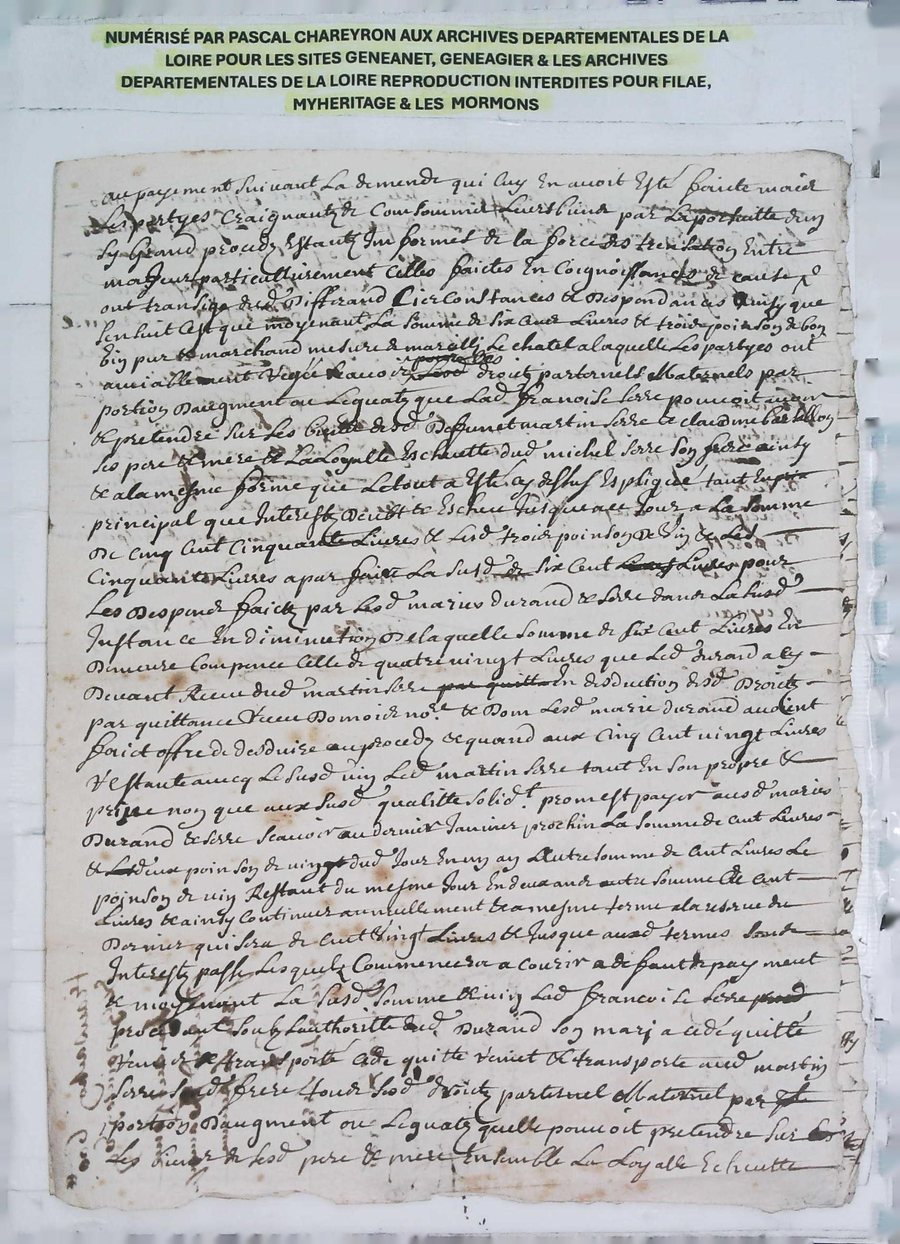 NUMÉRISÉ PAR PASCAL CHAREYRON AUX ARCHIVES DEPARTEMENTALES DE LA
LOIRE POUR LES SITES GENEANET, GENEAGIER & LES ARCHIVES
DEPARTEMENTALES DE LA LOIRE REPRODUCTION INTERDITES POUR FILAE,
MYHERITAGE & LES MORMONS
au payement suivant La demende qui Luy En avoit Esté faicte mais
Les partyes Craignantz de Consommer Leurs biens par La porsuitte dun
sy Grand procedz Estantz Informes de la force des transaction Entre
majeurs particullierement Celles faictes En Coignoissances de cause
ont transigé dud Differand Circonstances & Despendances Ainsy que
sensuit Cest que moyenant La somme de six Cent Livres & trois poinson de bon
vin pur & marchand mesure de Le chatel a laquelle Les partyes ont
amiablement droictz parternels Maternels par
portion Daugment ou Legatz que Lad francoise serre pouvoit avoir
& pretendre sur Les biens desd Deffunct martin serre & claudine
ses pere & mere & La Loyalle Escheutte dud michel serre son frere ainsy
& a la mesme forme que Le tout a Esté cy dessus Expliqué tant En
principal que Interestz & Escheu Jusque a ce Jour a La somme
De Cinq Cent Cinquante Livres & Lesd trois poinson de vin & Les
Cinquante Livres a par faire La susd de six Cent Livres pour
Les Despens faictz par Lesd maries durand & serre dans La susd
Instance En diminution De laquelle somme de six Cent Livres En
Demeure Compence Celle de quatre vingt Livres que Led durand a cy
Devant Receu dud martin serre par quitt En desduction desd Droictz
par quittance Receu no.e & Dom Lesd maries durand avoient
faict offre de desduire au procedz & quand aux Cinq Cent vingt Livres
Restante avecq Le susd vin Led martin serre tant En son propre &
prive non que aux susd qualitte solid.t promest payer ausd maries
Durand & serre scavoir au dernier Janvier prochin La somme de Cent Livres
& Lesd deux poinson de vin dud Jour En un an Autre somme de Cent Livres Le
poinson de vin Restant du mesme Jour En deux ans autre somme de Cent
Livres & ainsy Continuer annuellement & a mesme terme a la reserve du
Dernier qui sera de Cent vingt Livres & Jusque ausd termes sans
Interestz passé Lesquelz Commencera a courir a defaut de payment
& moyenant La susd somme & vin Lad francoise serre
procedant soubz Lauthoritté dud Durand son mary a cedé quitté
vendu & transporté cede quitte vend & transporte aud martin
serre sond frere tous sesd droictz parternel Maternel par
portion Daugment ou Legatz quelle pouvoit pretendre sur
Les biens de sesd pere & mere Ensemble La Loyalle Echeutte